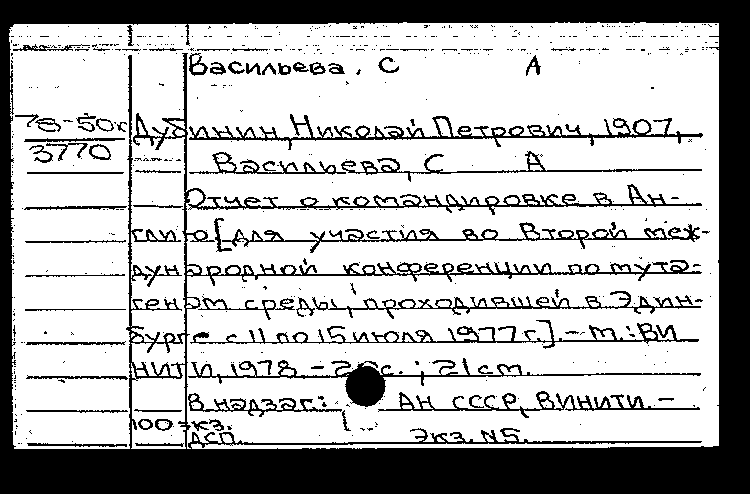 Васильева, С А
78-50к Дубинин, Николай Петрович, 1907,
3770 Васильева, С А
Отчет о командировке в Ан-
глию [для участия во Второй меж-
дународной конференции по мута-
генам среды, проходившей в Эдин-
бурге с 11 по 15 июля 1977 г.]. - М.: ВИ
НИТИ, 1978. - с.; 21 cm.
В надзаг.: АН СССР, ВИНИТИ. -
100 экз.
ДСП. Экз. N5.